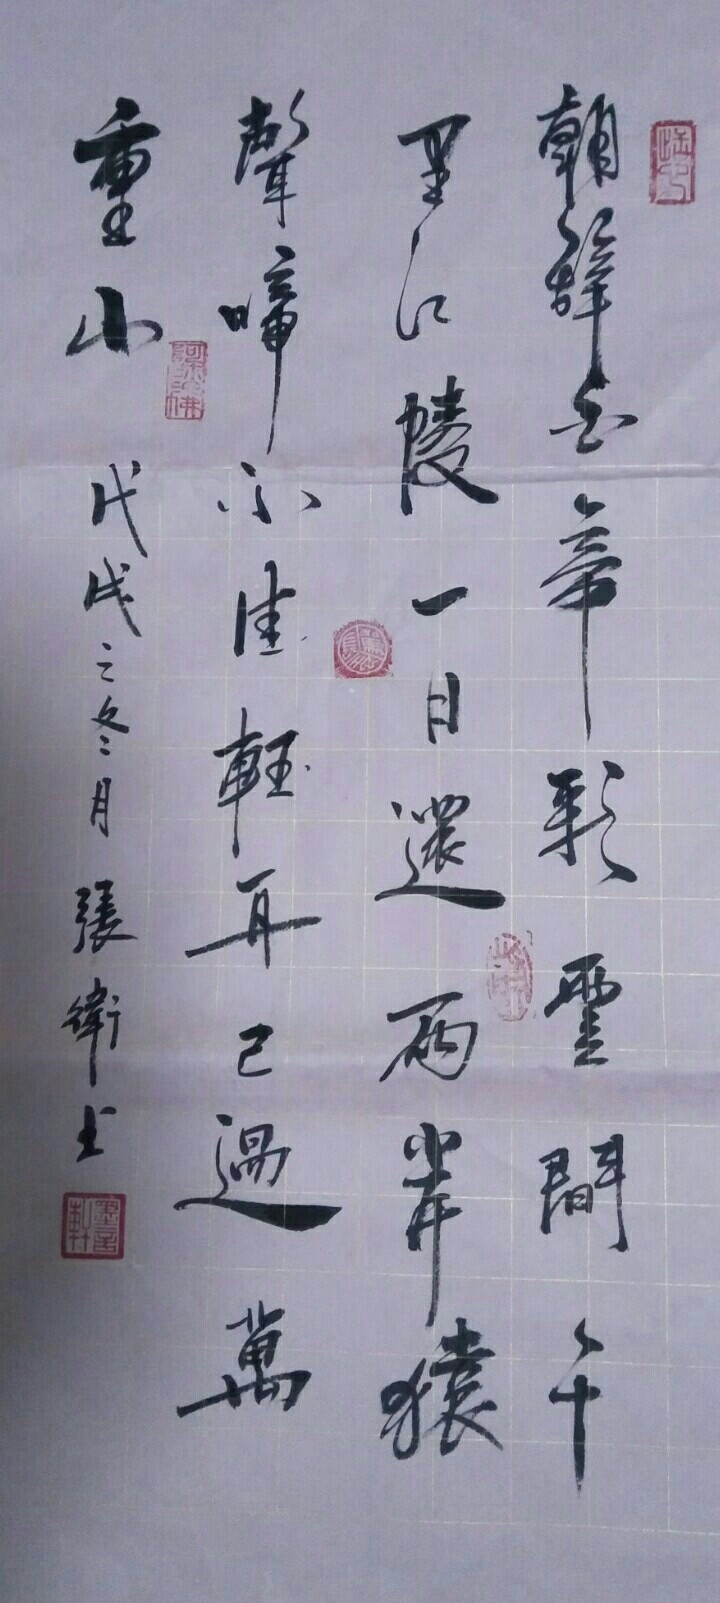 朝辭白帝彩雲間千
里江陵一日還兩岸猿
聲啼不住輕舟已過萬
重山
戊戌之冬月張衛书
阿彌陀佛